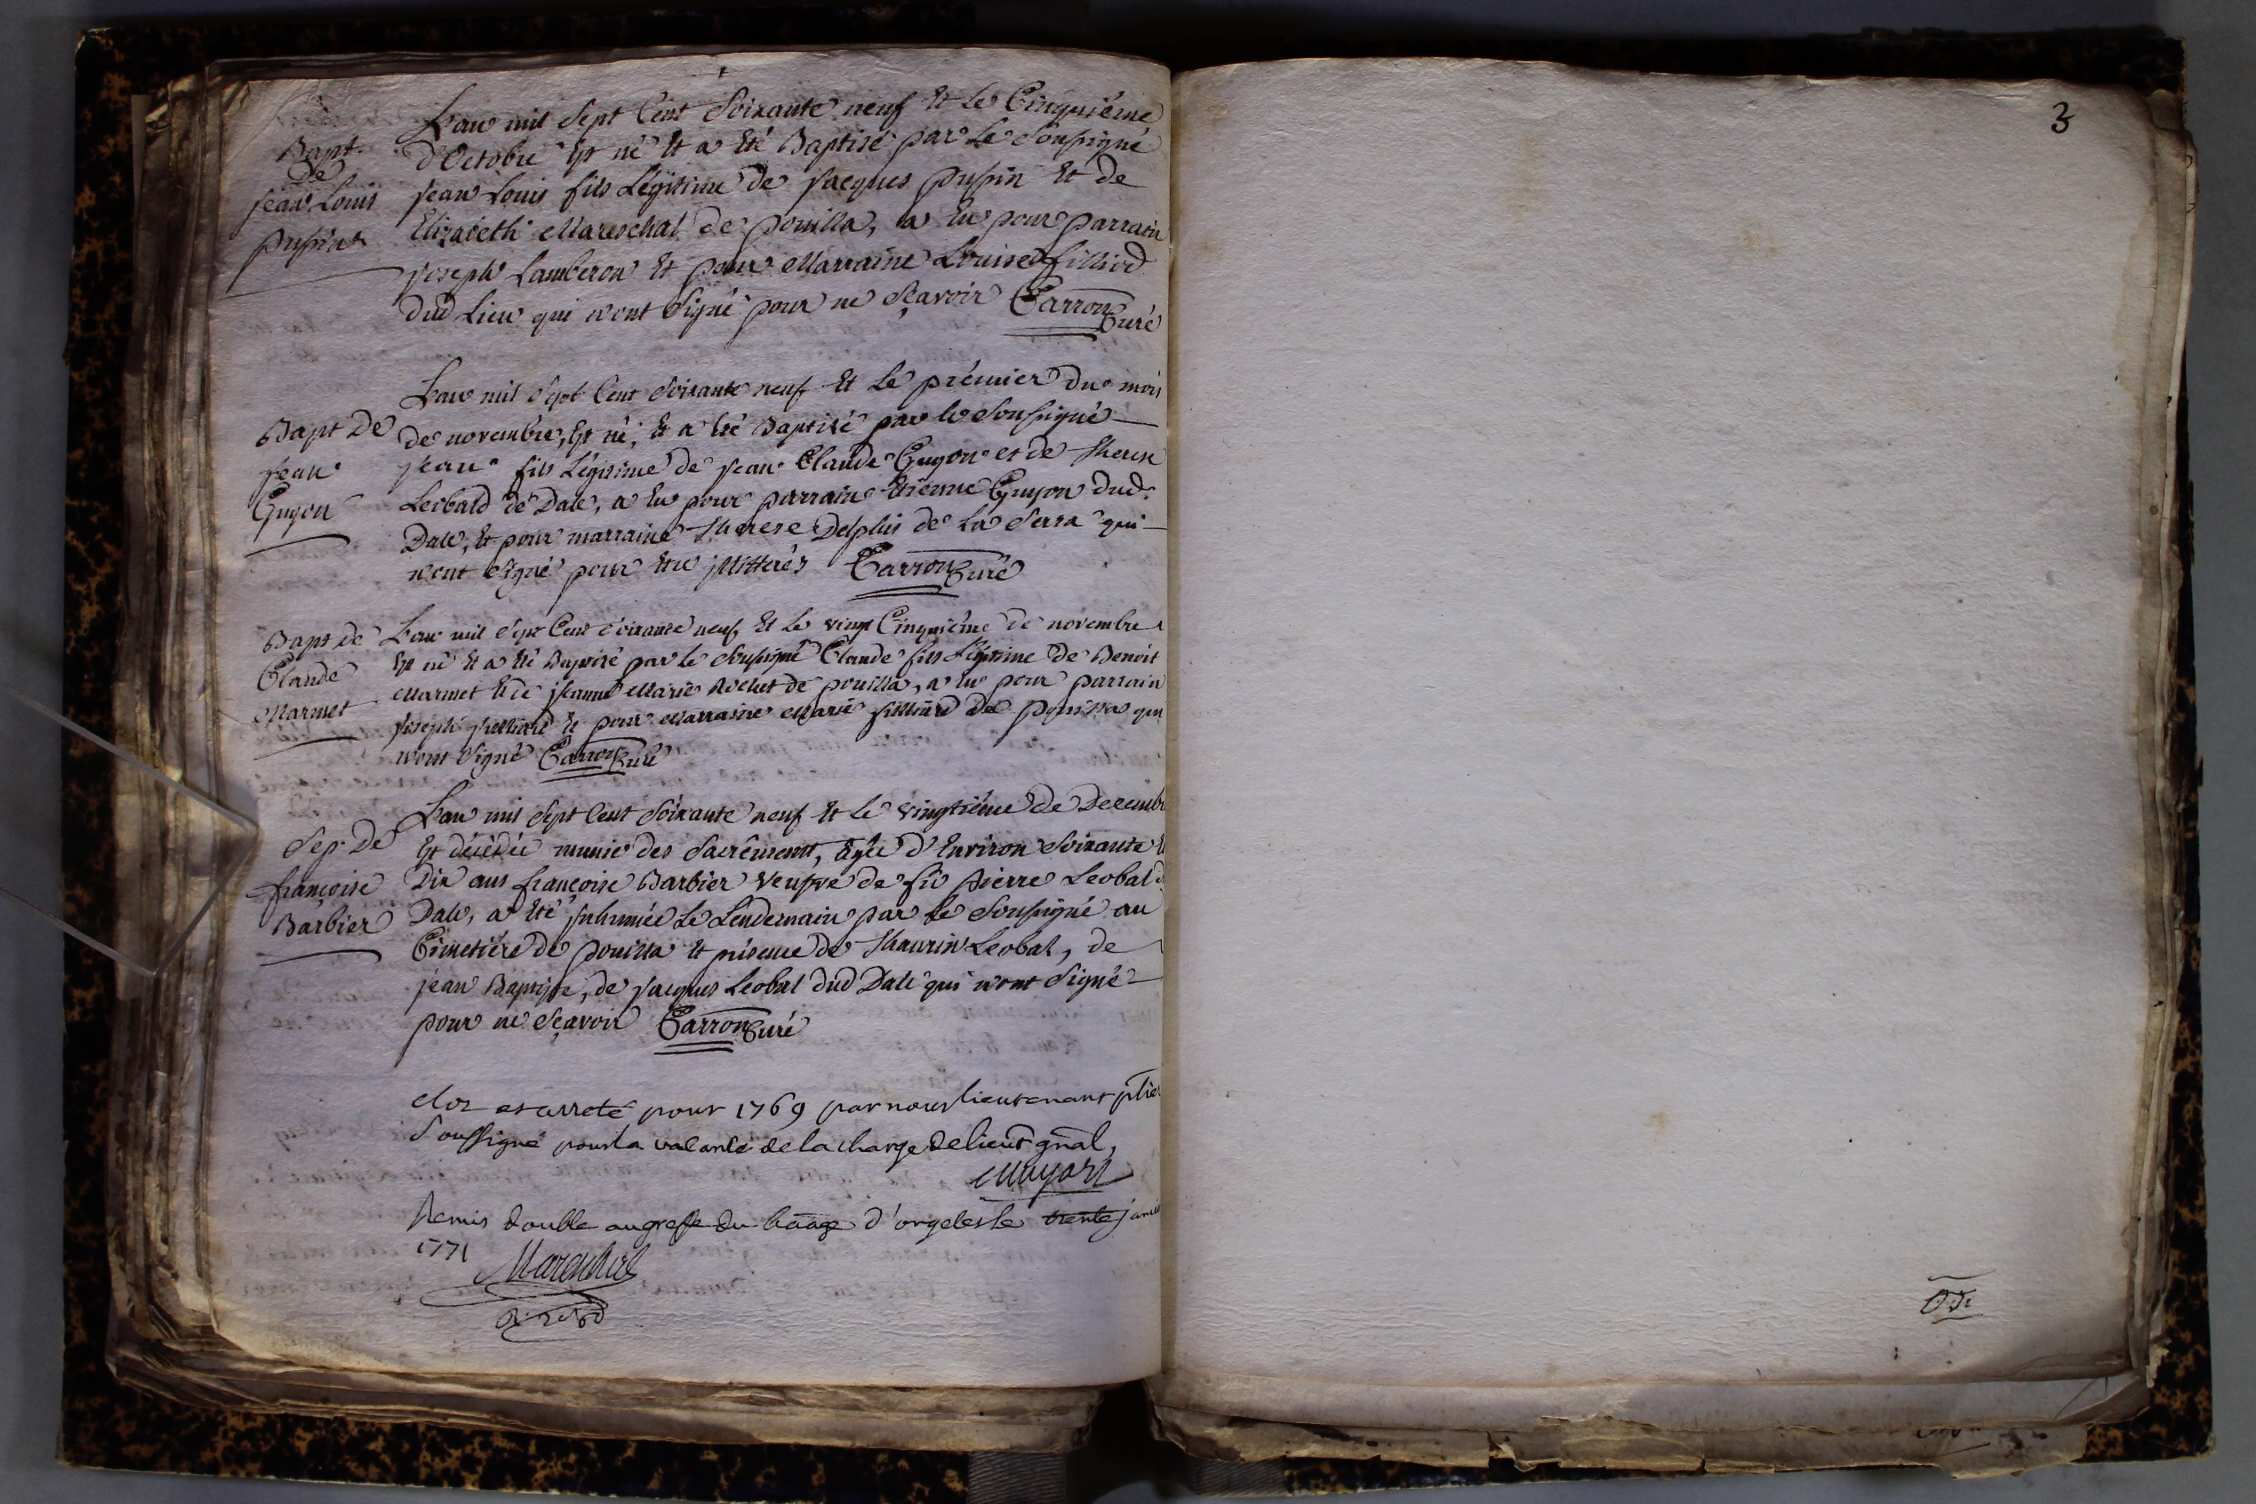 L'an mil sept Cent Soixante neuf Et le Cinquième
Bapt. de Jean Louis pussin
d'Octobre Est né Et a Eté Baptisé par Le Soussigné
Jean Louis fils Légitime de Jacques pussin Et de
Elizabeth Mareschal de pouilla, a Eu pour parrain
Joseph Lamberon Et pour Marraine Louise filliod
dud Lieu qui n'ont Signé pour ne Sçavoir Carron Curé
L'an mil Sept Cent Soixante neuf Et Le prémier du mois
Bapt De Jean Guyon
de novembre, Est né, Et a Eté Baptisé par le Soussigné
Jean fils Légitime de Jean Claude Guyon et de Therese
Leobald de Dale, a Eu pour parrain Etienne Guyon dud.
Dale, Et pour marraine Therese Delphis de La Serra qui
n'ont Signé pour Etre illitterés Carron Curé
Bapt de Claude Marmet
L'an mil Sept Cent Soixante neuf Et Le vingt Cinquième de novembre
Est né Et a Eté Baptisé par le Soussigné Claude fils Légitime de Benoit
Marmet Et de Jeanne Marie Rochet de pouilla, a Eu pour parrain
Joseph Et pour Marraine Marie de pouilla qui
n'ont Signé Carron Curé
L'an mil Sept Cent Soixante neuf Et le vingtième de Decemb
Sep. De françoise Barbier
Est décédée munie des Sacréments, agée d'Environ Soixante Et
Dix ans françoise Barbier Veufve de fû pierre Leobal d
Dale, a Eté Inhumée Le Lendemain par le Soussigné au
Cimetière de pouilla Et présence de Thaurin Leobal, de
jean Baptiste, de Jacques Leobal dud Dale qui n'ont Signé
pour ne Sçavoir Carron Curé
Clos et arreté pour 1769 par nous lieutenant plier
Soussigné pour la vacance de la charge de lieut gñal,
Remis double au greffe du baage d'orgelet le trente janvi
1771 Mareschal
3